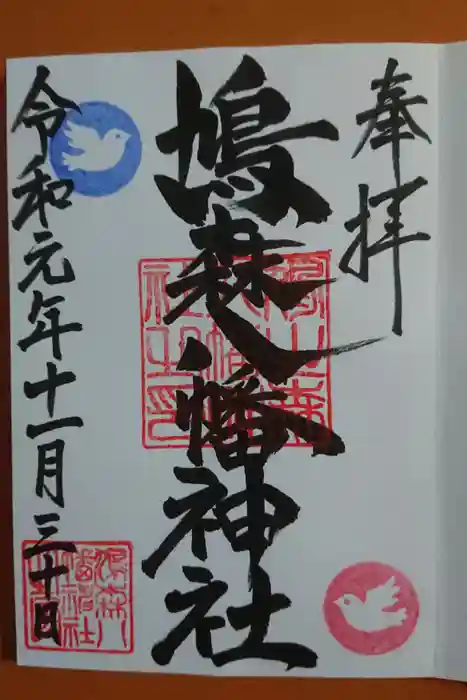 奉拝
鳩森八幡神社
令和元年十一月三十日